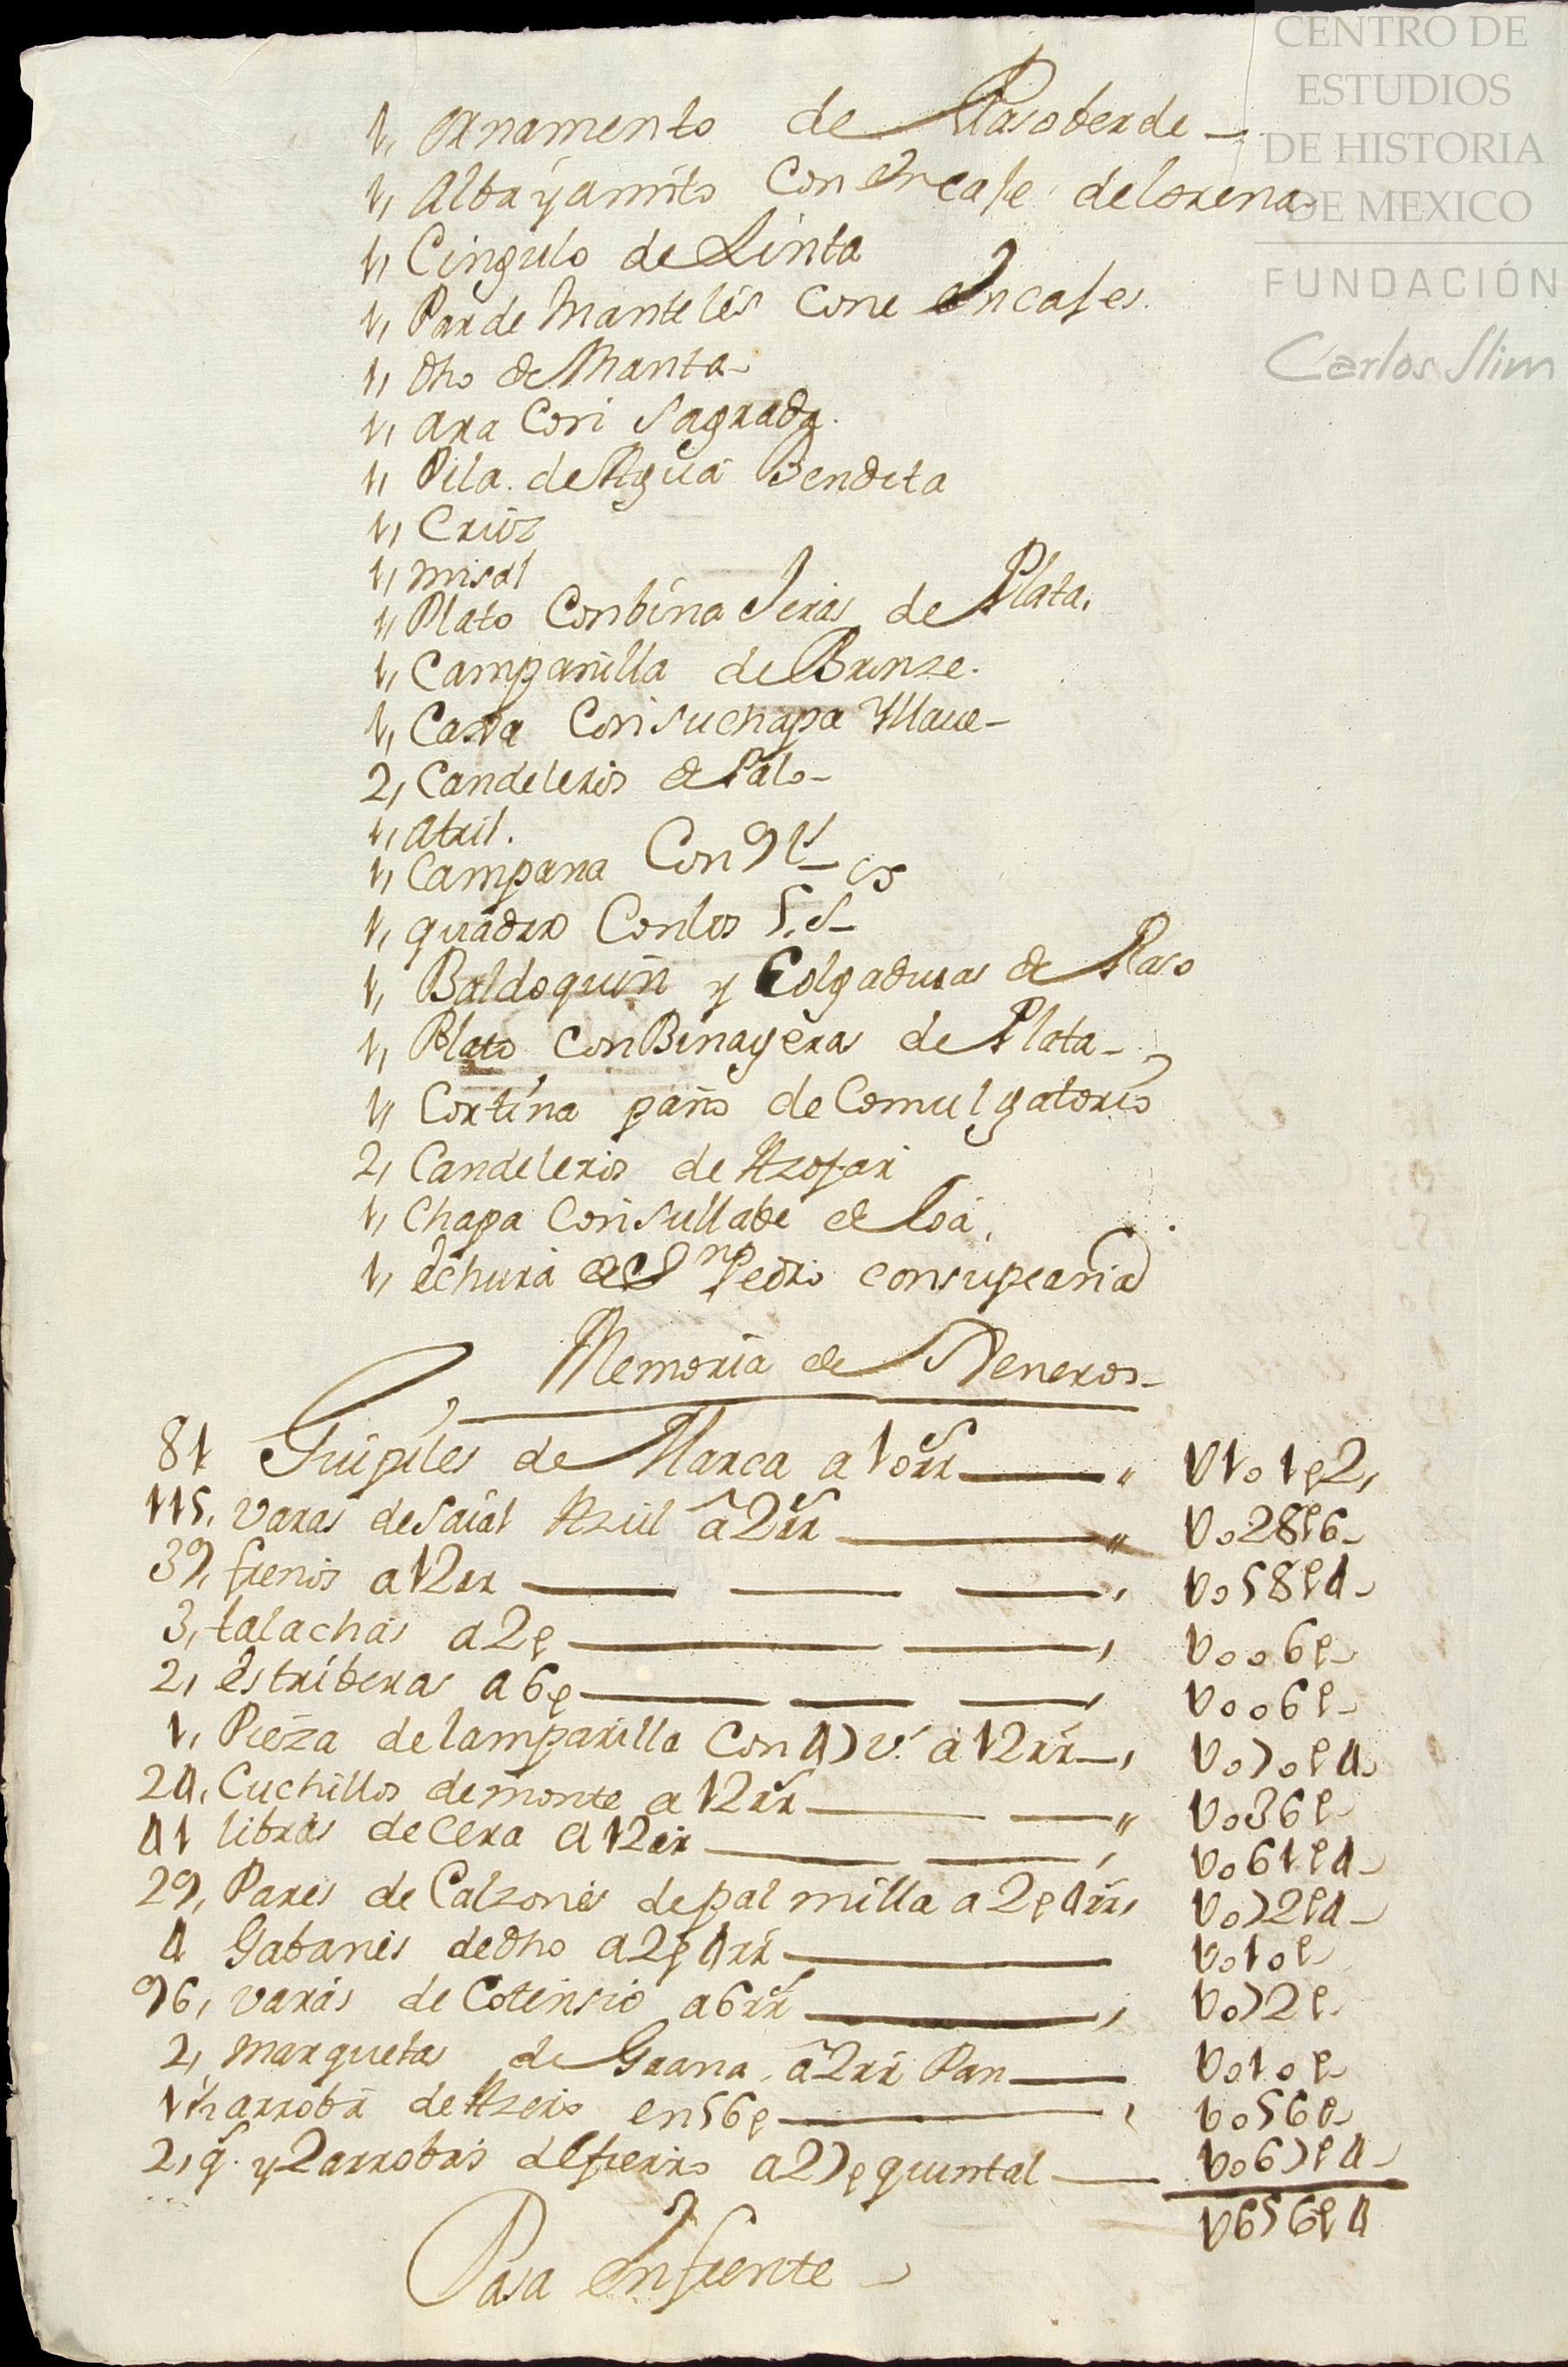 CENTRO DE
ESTUDIOS
DE HISTORIA
DE MEXICO
FUNDACIÓN
Carlos Slim
1, ornamento de Raso berde
1, Alba y amito Con encaje de lorena
1, Cingulo de Sinta
1, Par de Manteles Con encajes
1, dho de Manta
1, ara Con sagrada.
1, Pila de Agua Bendita
1, Cruz
1, misal
1, Plato Conbinajeras de Plata,
1, Campanilla de Bronse.
1, Caxa Con su chapa Yllaue
2, Candeleros de Palo
1, atril.
1, Campana Con 91
1, quadro Con los 5. S
1, Baldoquin y Colgaduras de Raso
1, Plato Con Binageras de Plata
1, Cortina paño de Comulgatorio
2, Candeleros de Azofar
1, Chapa Con su llabe de loa,
1, echura de Sn Pedro con su peana
Memoria de Jeneros
81 Guipiles de Marca a 10rr U101p2,
115, varas de saial Azul a 2rr U028p6
39, frenos a 12rr U058p4
3, talachas a 2p U006p
2, estriberas a 6p U006p
1, Pieza de lamparilla Con 47 v. a 12rr U070p4
24, Cuchillos de monte a 12rr U036p
41 libras de Cera a 12rr U061p4
29, Pares de Calzones de palmilla a 2p4rr U072p4
4 Gabanes de dho a 2p4rr U010p
96, varas de Cotensio a 6rr U072p
2, marquetas de Grana a 2rr Pan U010p
arroba de Azero en 56p U056p
2, q. y 2 arrobas de fierro a 27p quintal U067p4
U656p4
Pasa enfrente